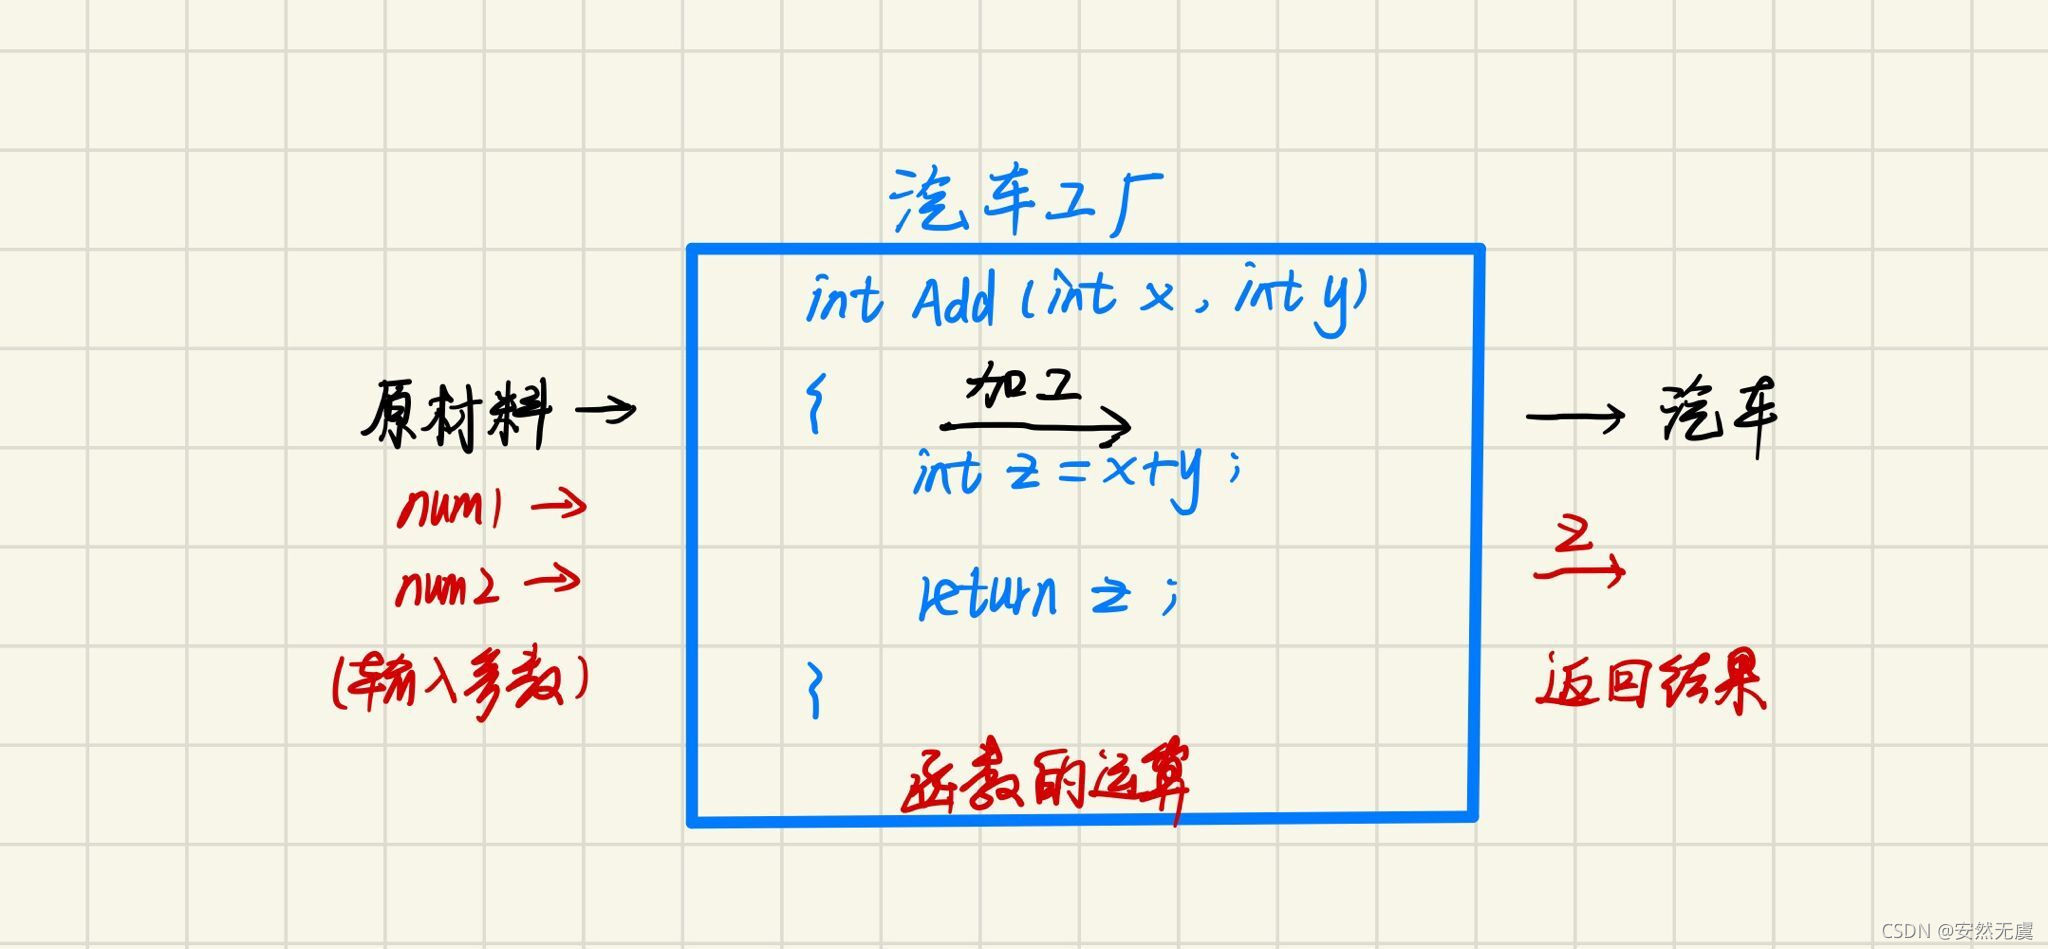 汽车工厂
int Add (int x, int y)
{
加工
原材料 →
→ 汽车
int z = x+y ;
num1 →
z
→
num2 →
return z ;
(输入参数)
}
返回结果
函数的运算
CSDN @安然无虞